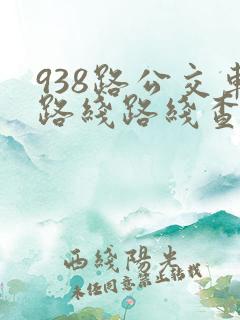 938路公交車
路綫路綫查
西綫陽光
未经同意禁止转载